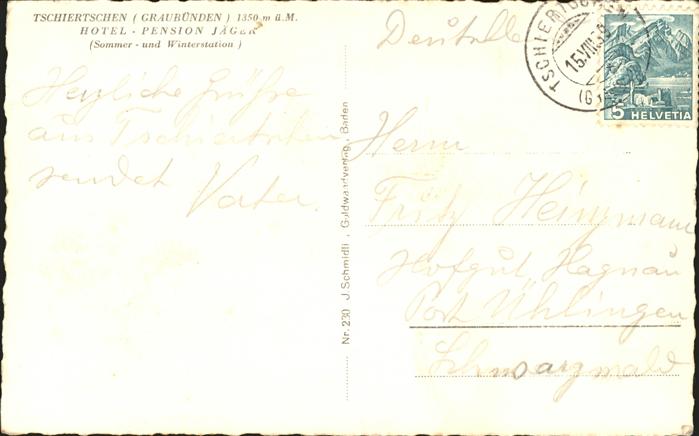 TSCHIERTSCHEN ( GRAUBÜNDEN ) 1350 m ü.M.
HOTEL - PENSION JÄGER
(Sommer - und Winterstation )
Herzliche Grüße
aus Tschiertschen
sendet Vater.
Nr. 230 J. Schmidli, Goldwandverlag, Baden
TSCHIERTSCHEN
15.VIII
5 HELVETIA
Herrn
Fritz Heinzmann
Hofgut Hagnau
Post Ühlingen
Schwarzwald